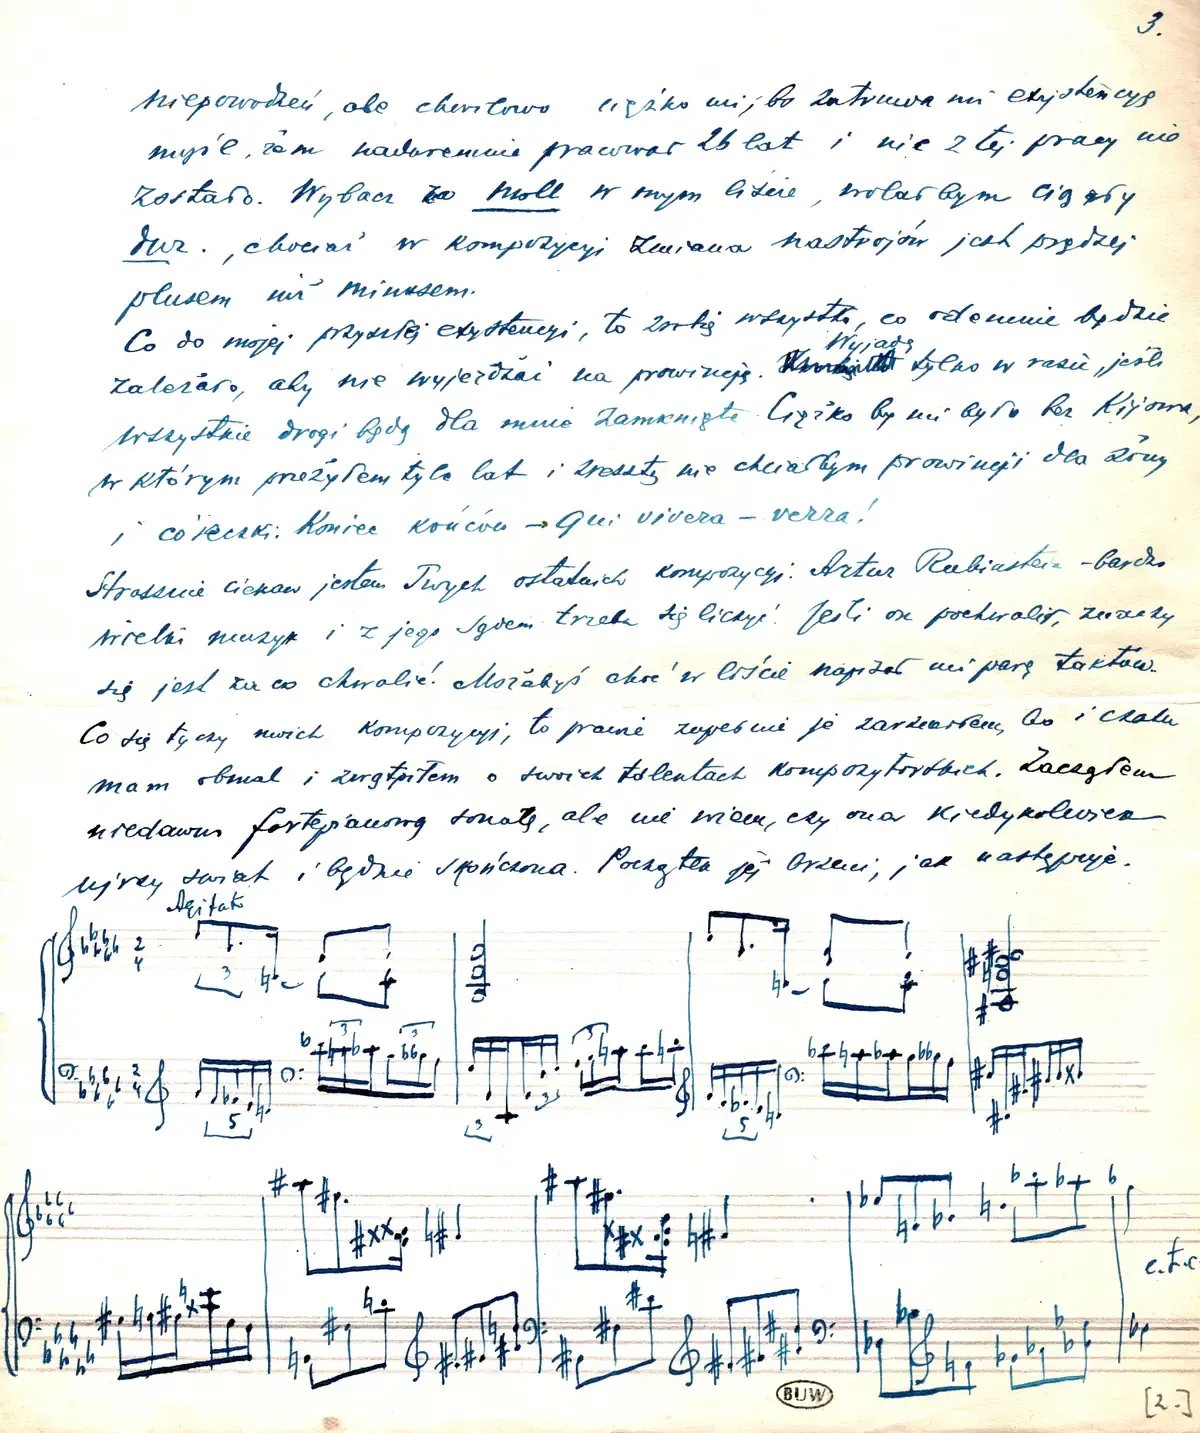 3.
niepowodzeń, ale chwilowo ciężko mi, bo zatruwa mi egzystencyę
myśl, żem nadaremnie pracował 26 lat i nic z tej pracy nie
zostało. Wybacz za moll w mym liście, wolałbym ciągły
dur., chociaż w kompozycyi zmiana nastrojów jest prędzej
plusem niż minusem.
Co do mojej przyszłej egzystencyi, to zrobię wszystko, co odemnie będzie
zależało, aby nie wyjeżdżać na prowincję. Wyjadę tylko w razie, jeśli
wszystkie drogi będą dla mnie zamknięte. Ciężko by mi było bez Kijowa,
w którym przeżyłem tyle lat i zresztą nie chciałbym prowincji dla żony
i córeczki. Koniec końców → Qui vivera – verra!
Strasznie ciekaw jestem Twych ostatnich kompozycyj. Artur Rubinstein – bardzo
wielki muzyk i z jego sądem trzeba się liczyć. Jeśli on pochwalił, znaczy
się jest za co chwalić! Możebyś choć w liście napisał mi parę taktów.
Co się tyczy moich kompozycyj, to prawie zupełnie je zarzuciłem, bo i czasu
mam obmal i zwątpiłem o swoich talentach kompozytorskich. Zacząłem
niedawno fortepianową sonatę, ale nie wiem, czy ona kiedykolwiek
ujrzy świat i będzie skończona. Początek jej brzmi, jak następuje.
Agitato
2
4
3
3
3
2
4
5
3
3
3
5
e.t.c
BUW
[2.]